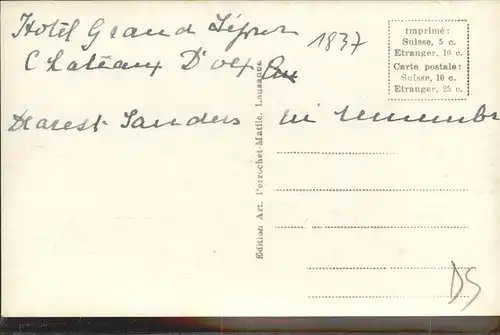 Hotel Grand
Chateaux D'oex
Dearest Sanders in remembr
1837
Imprimé:
Suisse, 5 c.
Etranger, 10 c.
Carte postale:
Suisse, 10 c.
Etranger, 25 c.
Edition Art. Perrochet-Matile, Lausanne
DS